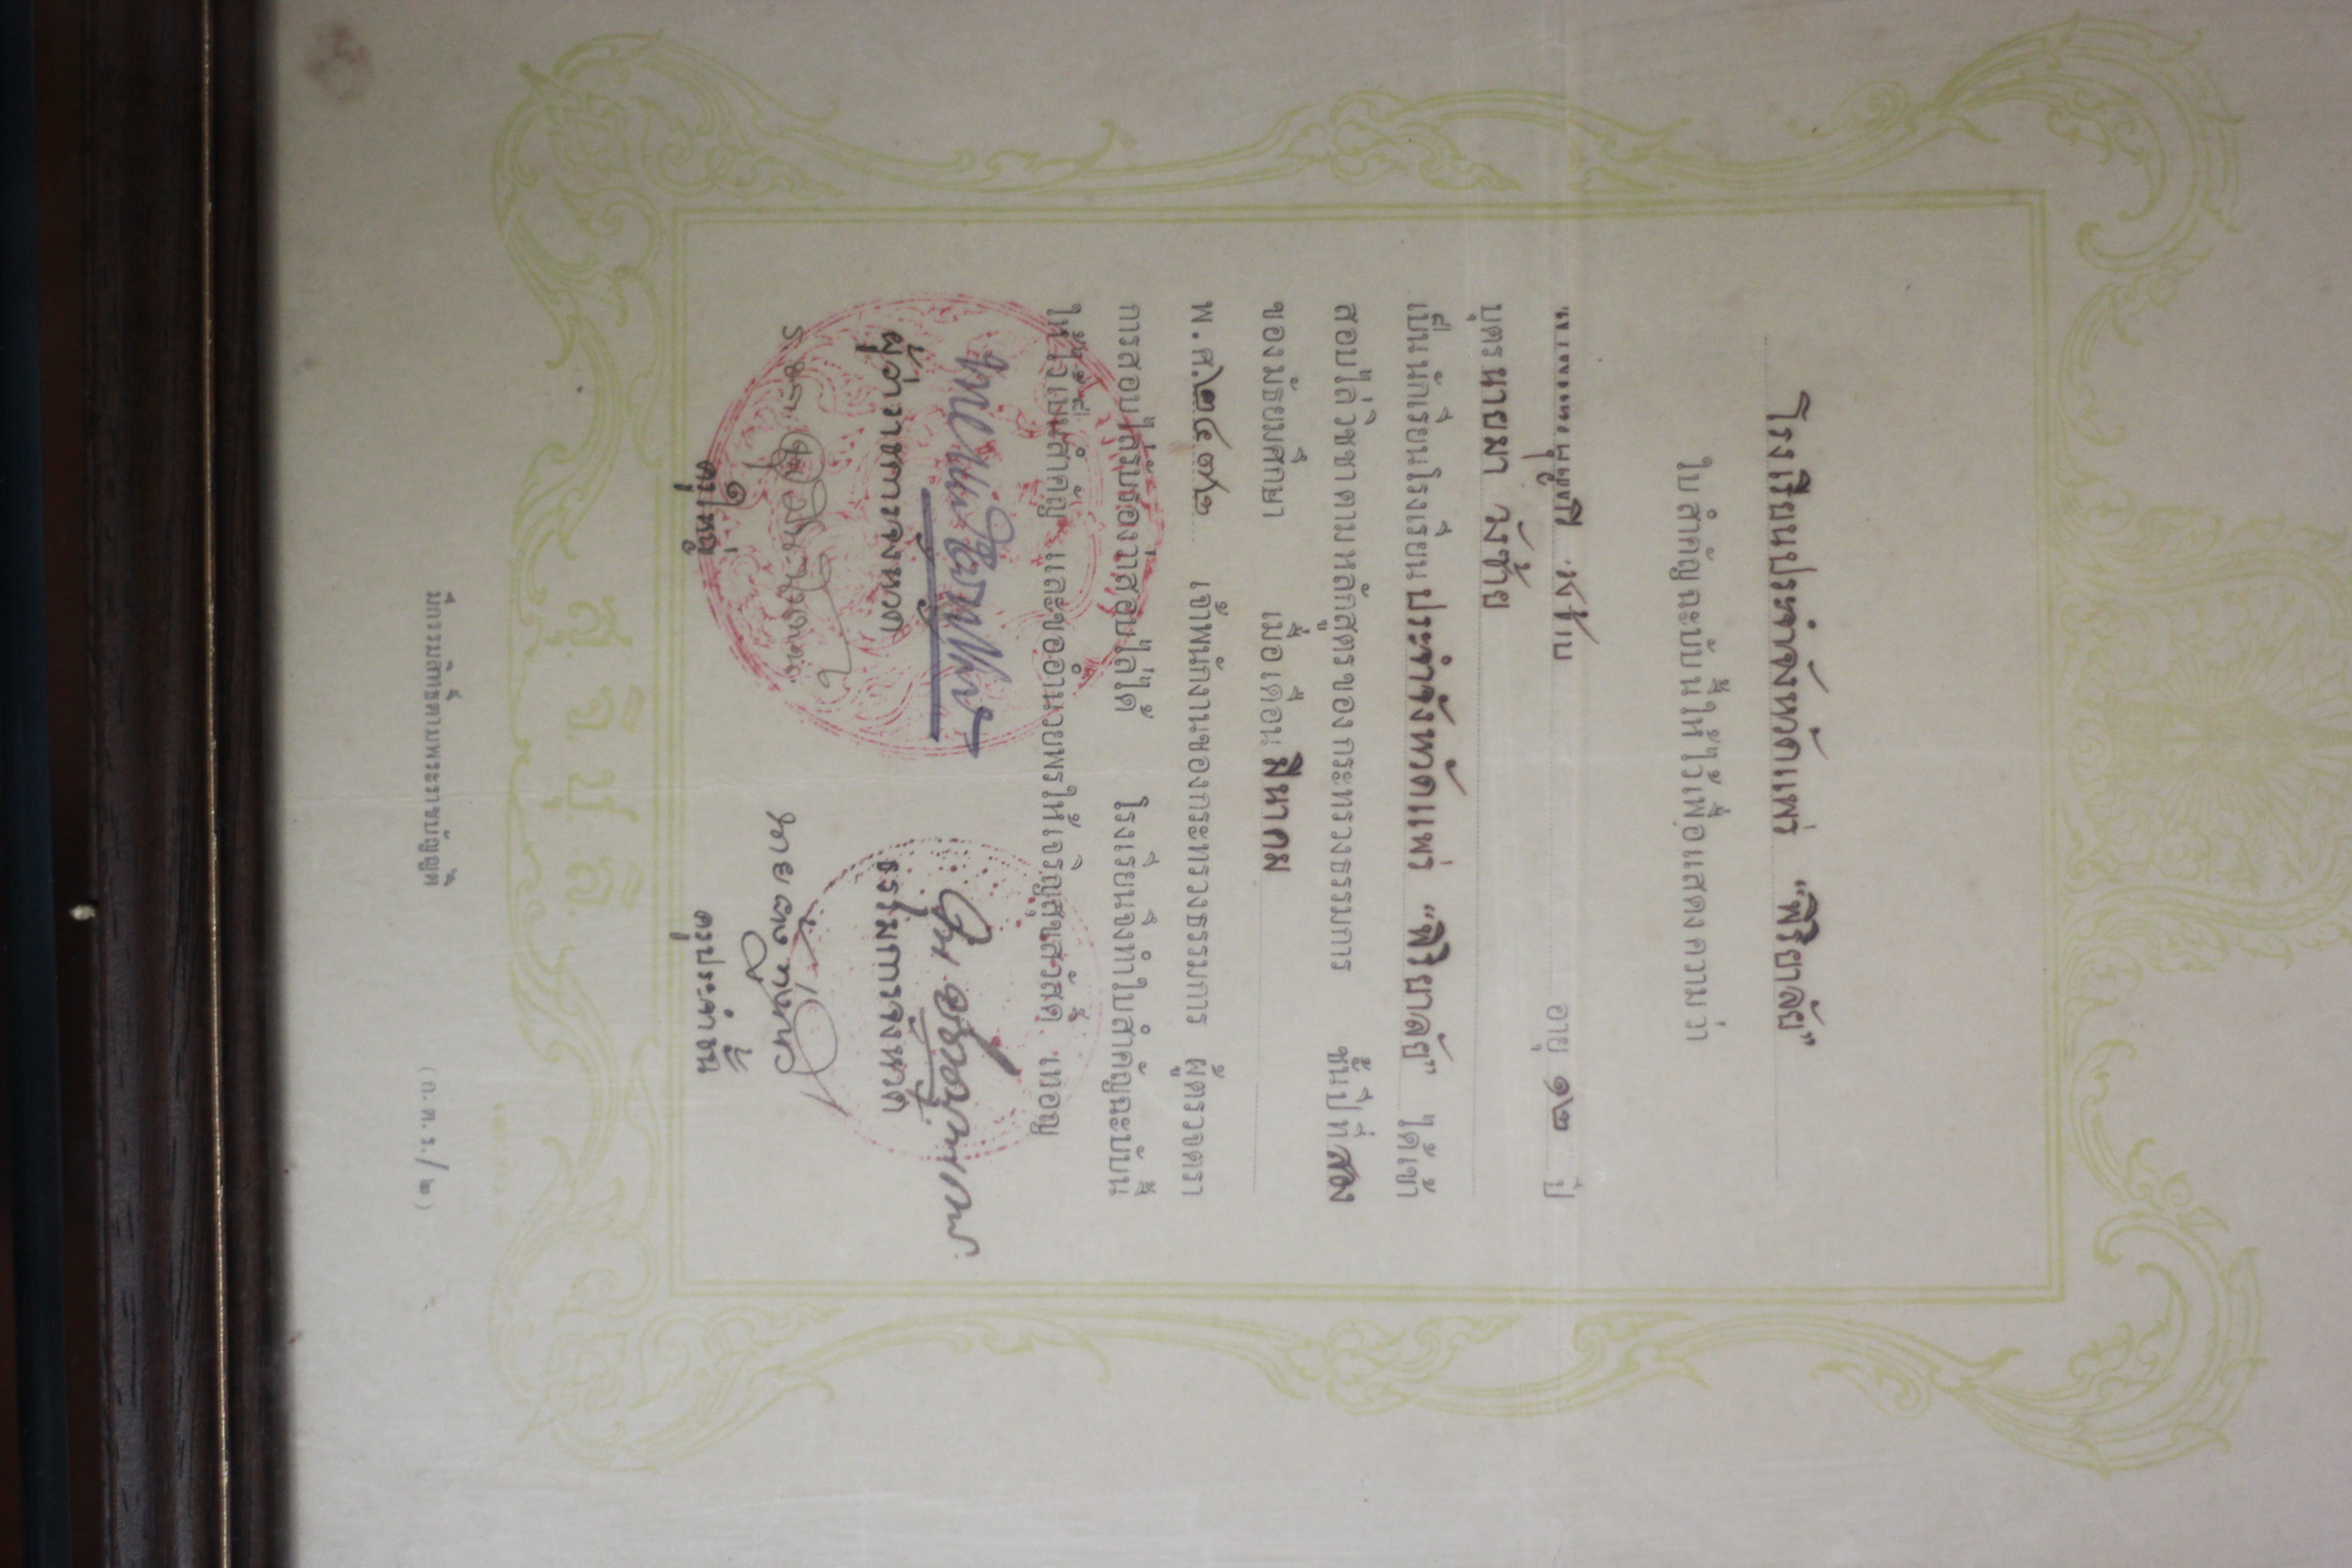 โรงเรียนประจำจังหวัดแพร่ "พิริยาลัย"
ใบสำคัญฉะบับนี้ให้ไว้เพื่อแสดงความว่า
อายุ ๑๒ ปี
บุตร นายมา วังซ้าย
เป็นนักเรียนโรงเรียน ประจำจังหวัดแพร่ "พิริยาลัย" ได้เข้า
สอบไล่วิชชาตามหลักสูตรของกระทรวงธรรมการ ชั้นปีที่ สาม
ของมัธยมศึกษา เมื่อเดือน มีนาคม
พ.ศ. ๒๔๗๒ เจ้าพนักงานของกระทรวงธรรมการ ผู้ตรวจตรา
การสอบไล่รับรองว่าสอบไล่ได้ โรงเรียนจึงทำใบสำคัญฉะบับนี้
ให้ไว้เป็นสำคัญ และขออำนวยพรให้เจริญสุขสวัสดิ์ เทอญ
ผู้ว่าราชการจังหวัด ธรรมการจังหวัด
ครูใหญ่ ครูประจำชั้น
สุ จิ ปุ ลิ
มีกรรมสิทธิ์ตามพระราชบัญญัติ